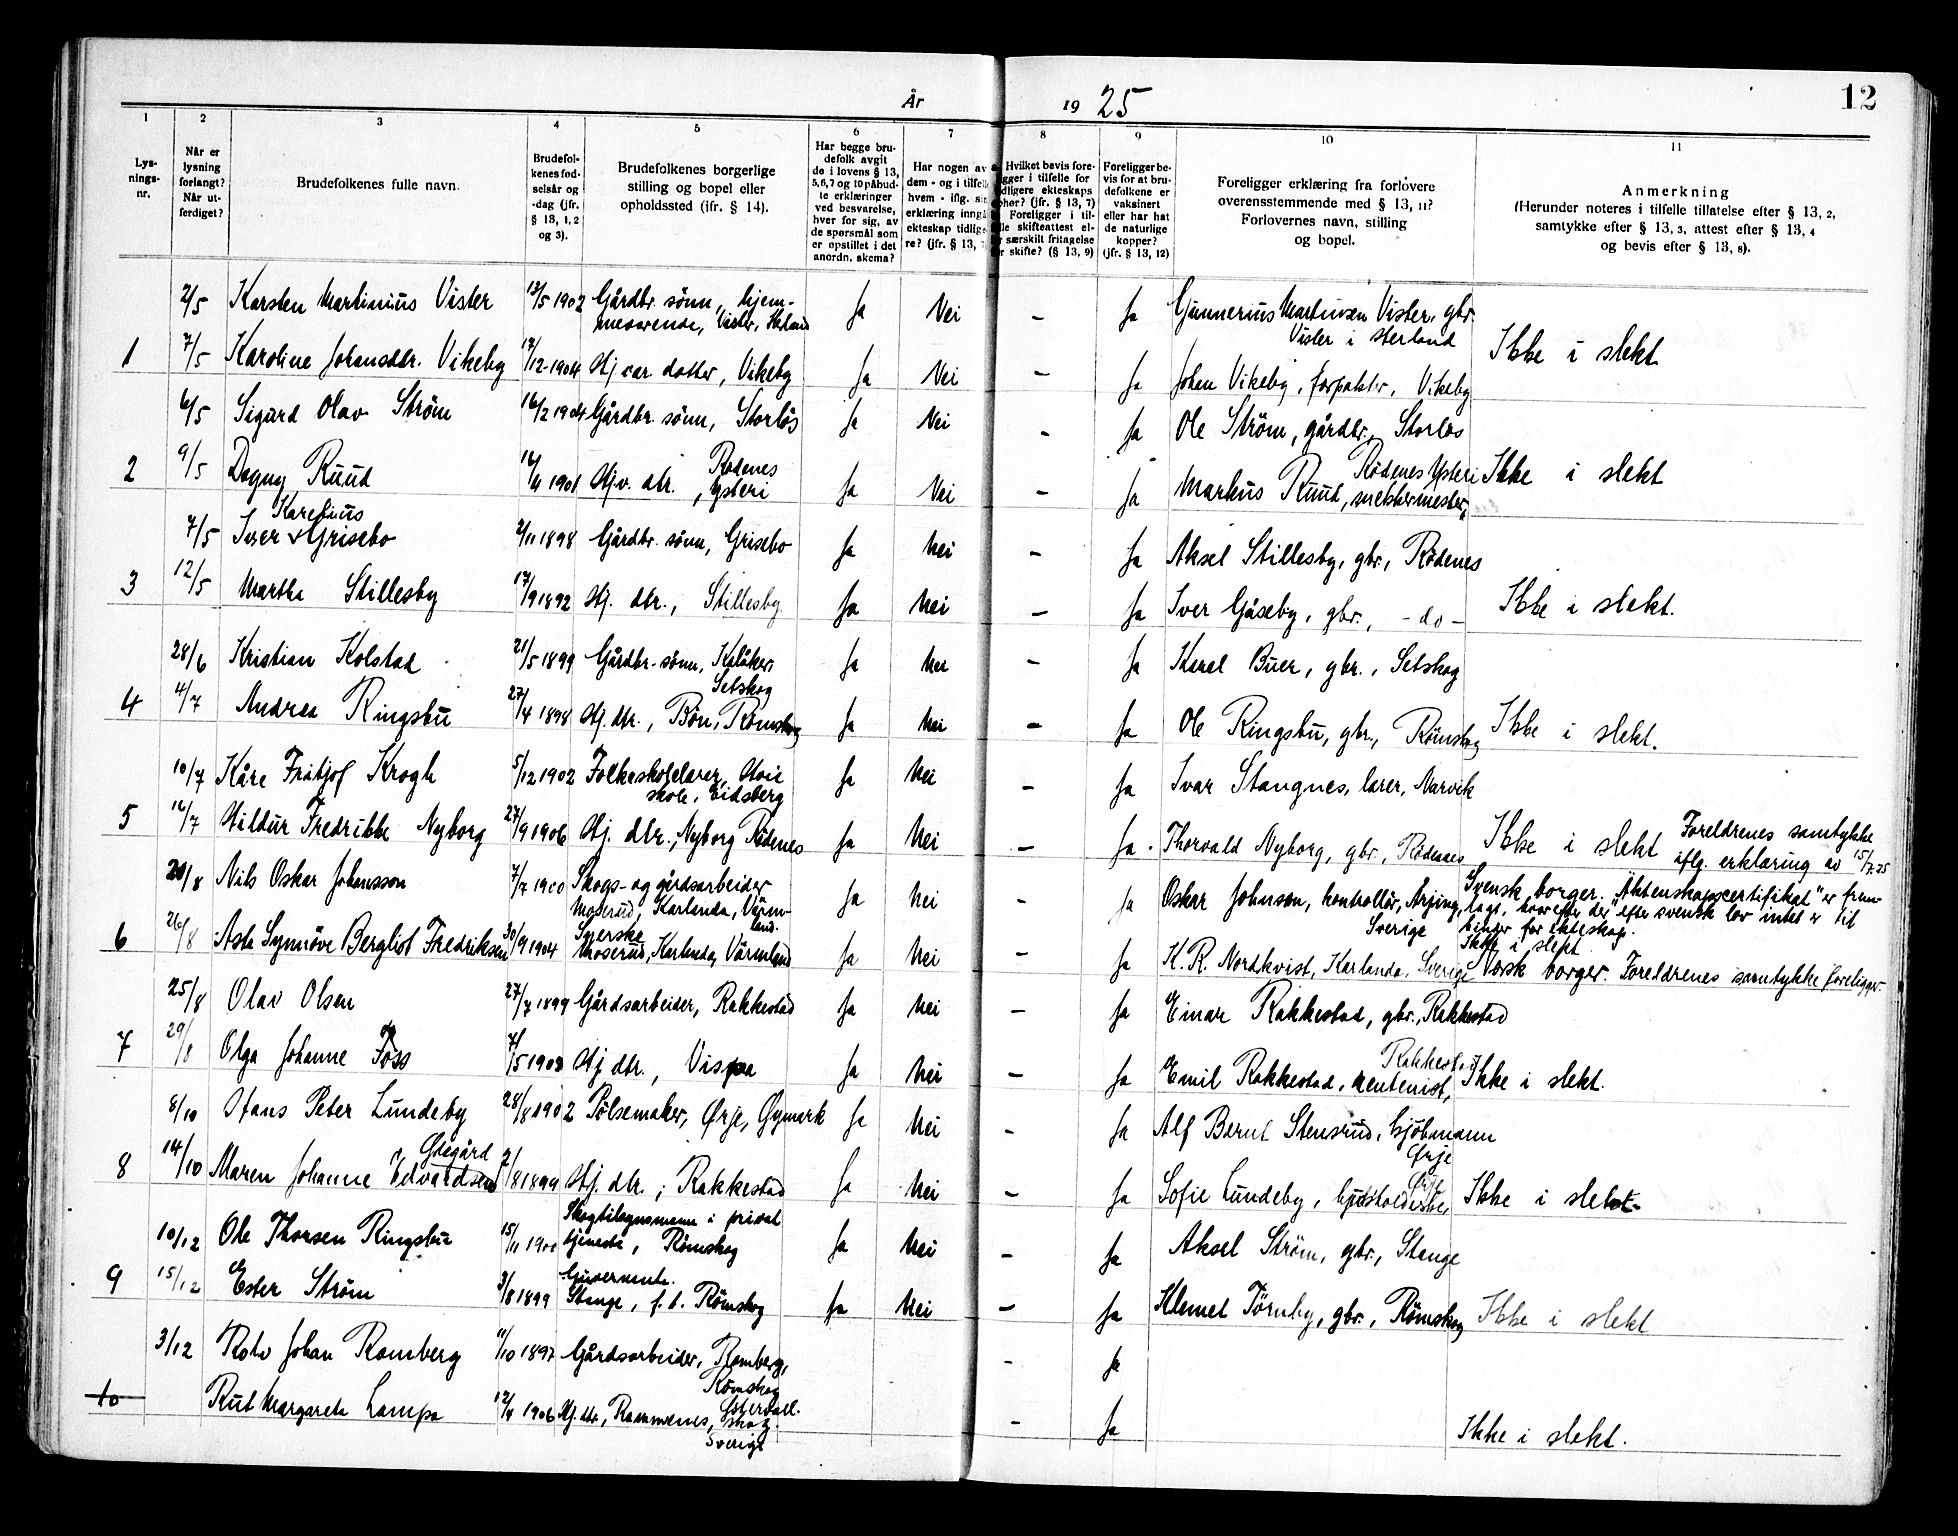 År 1925
12
1 2 3 4 5 6 7 8 9 10 11
Lys-
nings-
nr.
Når er
lysning
forlangt?
Når ut-
ferdiget?
Brudefolkenes fulle navn.
Brudefol-
kenes fød-
selsår og
-dag (jfr.
§ 13, 1, 2
og 3).
Brudefolkenes borgerlige
stilling og bopel eller
opholdssted (jfr. § 14).
Har begge bru-
defolk avgit
de i lovens § 13,
5, 6, 7 og 10 påbud-
te erklæringer
ved besvarelse,
hver for sig, av
de spørsmål som
er opstillet i det
anordn. skema?
Har nogen av
dem - og i tilfelle
hvem - iflg. sin
erklæring inngå
ekteskap tidlige-
re? (jfr. § 13, 7
Hvilket bevis fore-
gger i tilfelle for
dligere ekteskaps
phør? (jfr. § 13, 7)
Foreligger i til-
lle skifteattest el-
r særskilt fritagelse
r skifte? (§ 13, 9)
Foreligger be-
vis for at bru-
defolkene er
vaksinert
eller har hat
de naturlige
kopper?
(jfr. § 13, 12)
Foreligger erklæring fra forlovere
overensstemmende med § 13, 11?
Forlovernes navn, stilling
og bopel.
Anmerkning
(Herunder noteres i tilfelle tillatelse efter § 13, 2,
samtykke efter § 13, 3, attest efter § 13, 4
og bevis efter § 13, 8).
2/5 Karsten Martinius Vister 13/5 1902 Gårdbr. sønn, hjem-
meværende, Vister, Ja Nei - Ja Gunnerius Martinsen Vister, gbr.
Vister i
1 7/5 Karoline Johansdtr. Vikeby 17/12-1904 Hj.vær. datter, Vikeby Ja Nei - Ja Johan Vikeby, forpakter, Vikeby Ikke i slekt
6/5 Sigurd Olav Strøm 16/2 1904 Gårdbr. sønn, Storløs Ja Nei - Ja Ole Strøm, gårdbr., Storløs
2 9/5 Dagny Ruud 1901 Hjv. dtr., Rødenes
ysteri Ja Nei - Ja Markus Ruud, mektermester, Rødenes Ysteri Ikke i slekt
7/5 Iver Karelius Grisebo 2/11 1898 Gårdbr. sønn, Grisebo Ja Nei - Ja Aksel Stillesby, gbr., Rødenes
3 12/5 Martha Stillesby 17/9 1892 Hj. dtr., Stillesby Ja Nei - Ja Iver Gåseby, gbr., - do - Ikke i slekt.
28/6 Kristian Kolstad 21/5 1899 Gårdbr. sønn, Kolåker,
Setskog Ja Nei - Ja Karel Buer, gbr., Setskog
4 4/7 Andrea Ringsbu 27/4 1898 Hj. dtr., Bøn, Rømskog Ja Nei - Ja Ole Ringsbu, gbr., Rømskog Ikke i slekt.
10/7 Kåre Fritjof Krogh 5/12 1902 Folkeskolelærer, Hvie
skole, Eidsberg Ja Nei - Ja Ivar Stangnes, lærer, Narvik
5 16/7 Hildur Fredrikke Nyborg 27/9 1906 Hj. dtr., Nyborg Rødenes Ja Nei - Ja. Thorvald Nyborg, gbr., Rødenes Ikke i slekt Foreldrenes samtykke
iflg. erklæring av 15/7.25
20/8 Nils Oskar Johansson 7/7 1900 Skogs- og gårdsarbeider
Moserud, Karlanda, Värm-
land. Ja Nei - Ja Oskar Johnson, kontrollør, Årjäng,
Sverige Svensk borger. "Äktenskapscertifikat" er frem-
lagt, hvorefter der efter svensk lov intet er til
hinder for ekteskap.
Ikke i slekt
6 26/8 Asta Synnøve Bergliot Fredriksen 30/9 1904 Svenske
Moserud, Karlanda, Värmland Ja Nei - Ja K.R. Nordkvist, Karlanda, Sverige Norsk borger. Foreldrenes samtykke foreligger.
25/8 Olav Olsen 27/7 1899 Gårdsarbeider, Rakkestad Ja Nei - Ja Einar Rakkestad, gbr., Rakkestad
7 29/8 Olga Johanne Foss 7/5 1903 Hj dtr., Vispa Ja Nei - Ja Emil Rakkestad, rentenist, Rakkestad Ikke i slekt.
8/10 Hans Peter Lundeby 28/8 1902 Pølsemaker, Ørje, Øymark Ja Nei - Ja Alf Bernt Stensrud, kjøbmann
Ørje
8 14/10 Maren Johanne Edvardsen Ødegård 2/8 1899 Hj. dtr., Rakkestad Ja Nei - Ja Sofie Lundeby, husholderske, Ørje Ikke i slekt
10/12 Ole Thorsen Ringsbu 15/11 1900 Skogtilsynsmann i privat
tjeneste, Rømskog Ja Nei - Ja Aksel Strøm, gbr., Stange
9 15/12 Ester Strøm 3/8 1899 Guvernante.
Stange, f. t. Rømskog Ja Nei - Ja Klemet Tørnby, gbr., Rømskog Ikke i slekt
3/12 Rolv Johan Romberg 11/10 1897 Gårdsarbeider, Romberg,
Rømskog - Ja
10 Rut Margareta Lampa 12/4 1906 Hj. dtr., Rammenes,
skog.
Sverige - Ja Ikke i slekt.